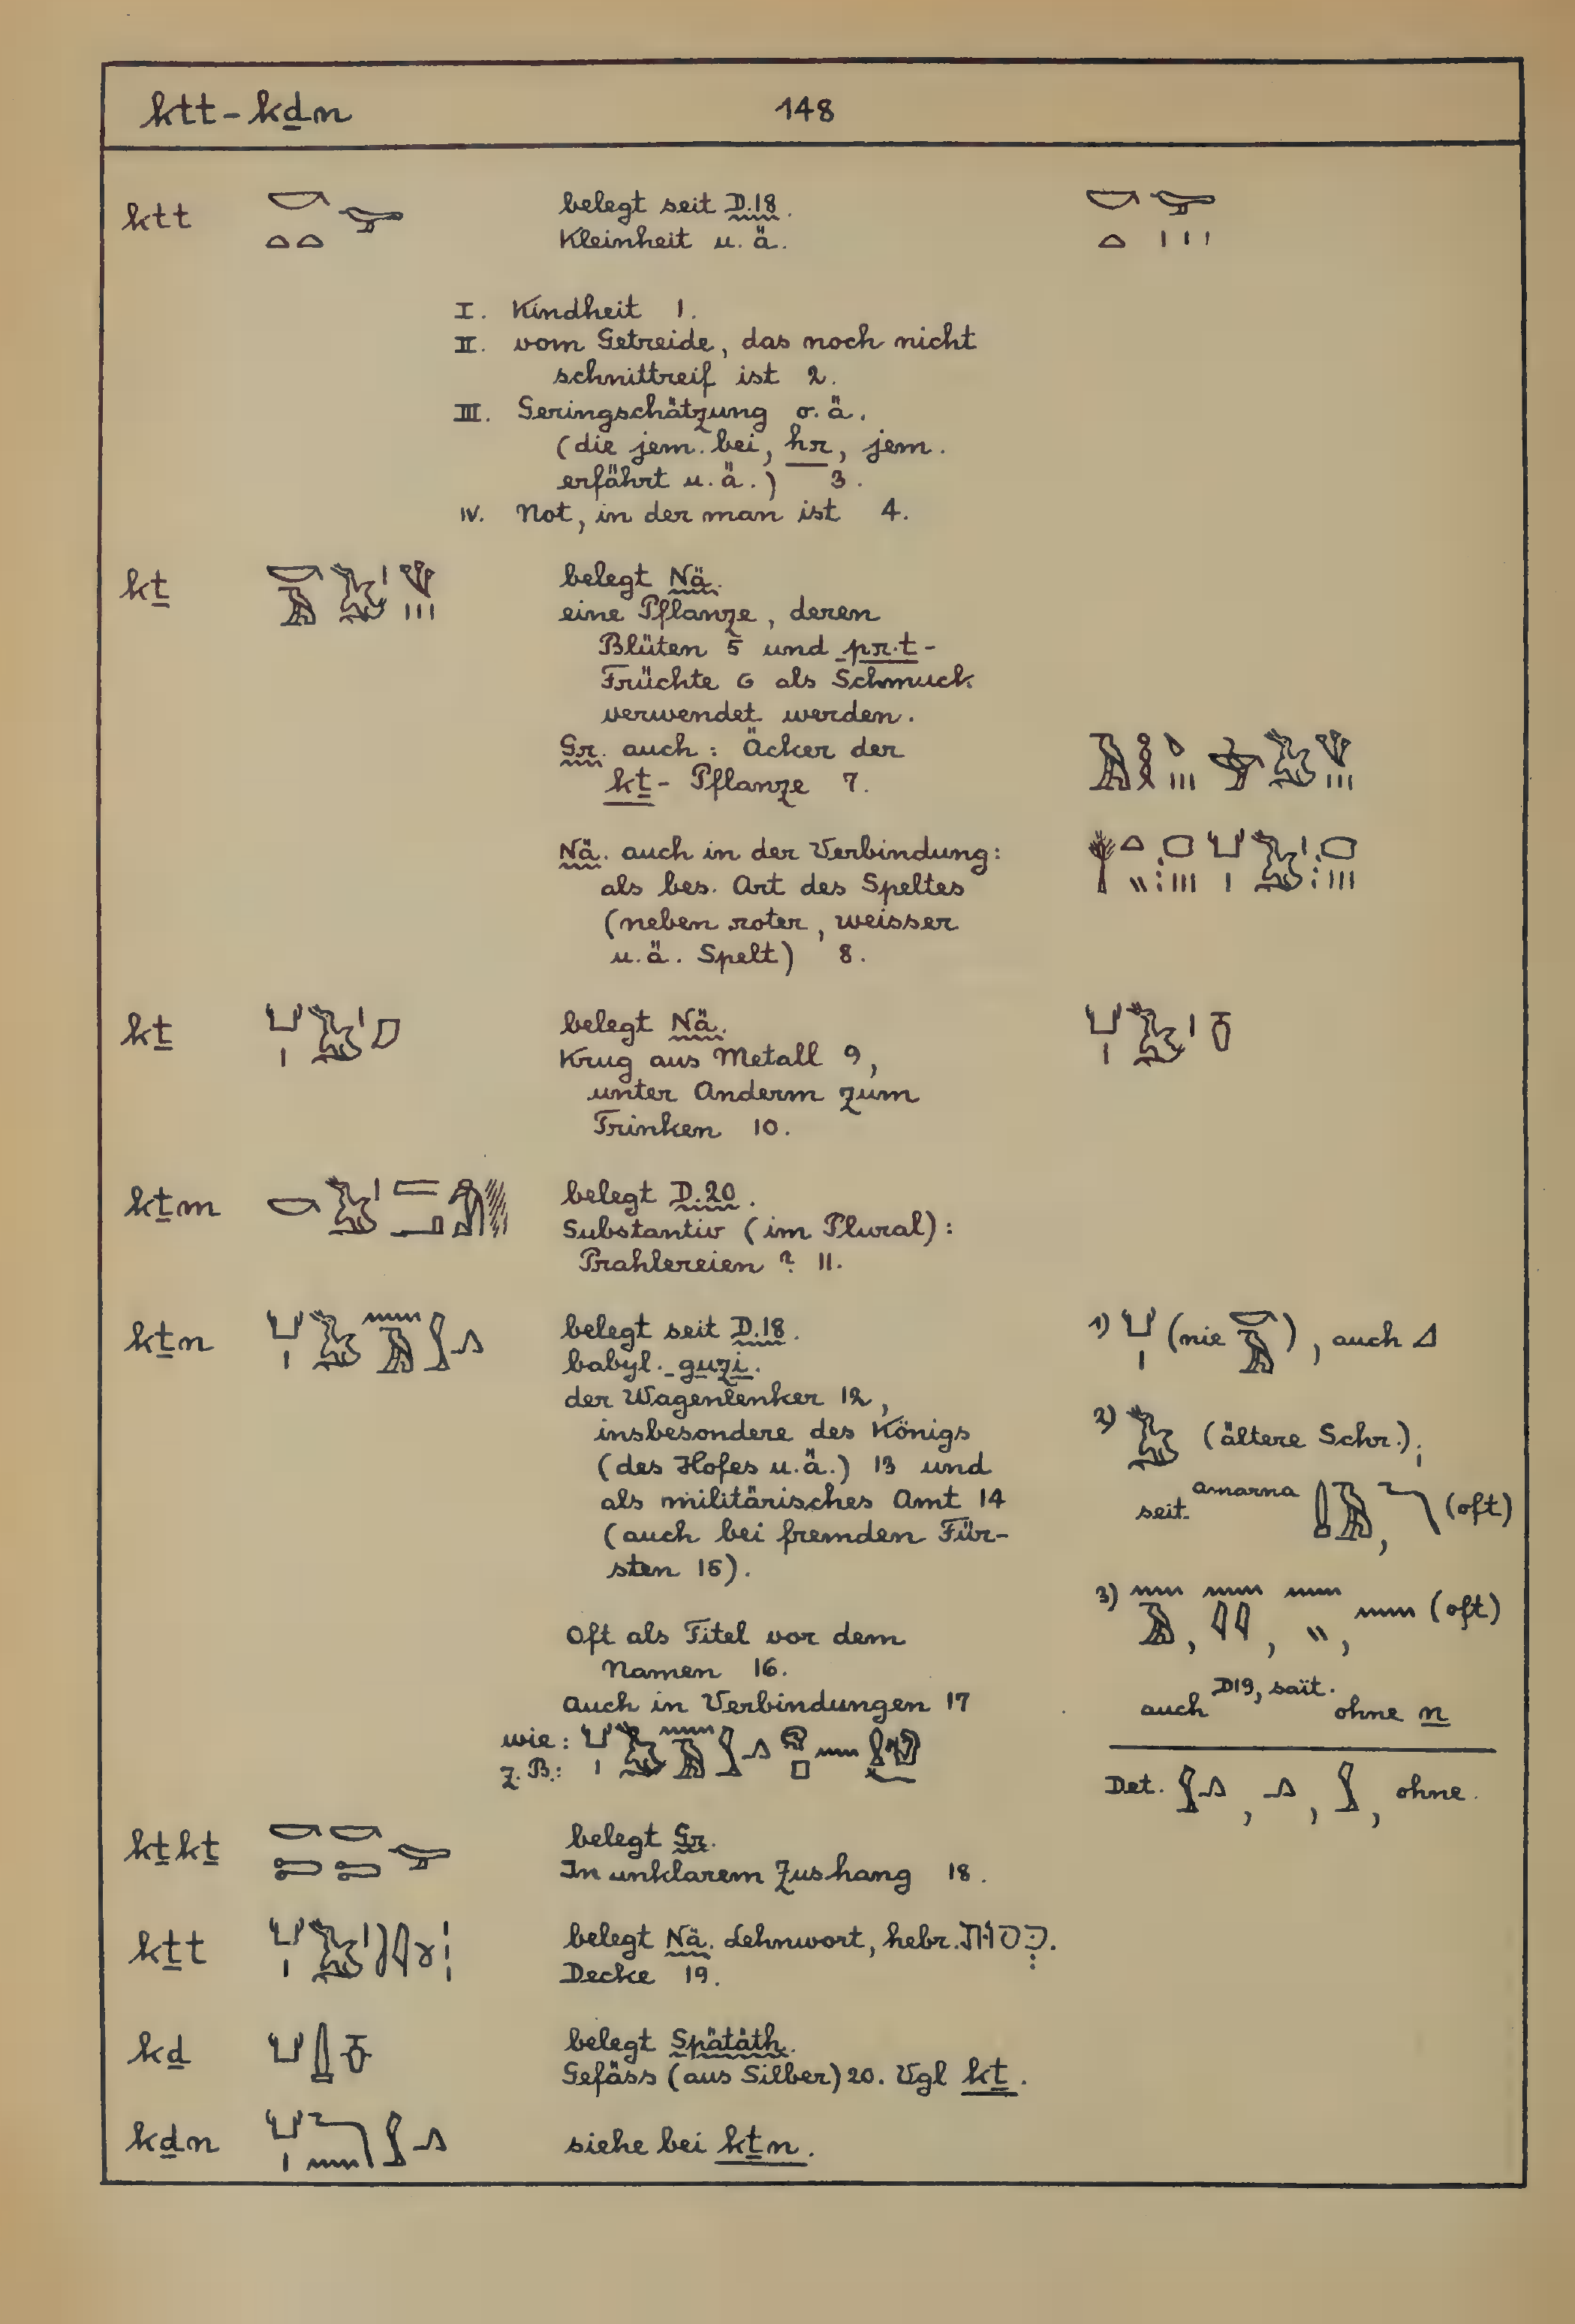 ktt - kḏn 148
ktt belegt seit D.18.
Kleinheit u. ä.
I. Kindheit 1.
II. vom Getreide, das noch nicht
schnittreif ist 2.
III. Geringschätzung o. ä.
(die jem. bei, hr, jem.
erfährt u. ä.) 3.
IV. Not, in der man ist 4.
kṯ belegt Nä.
eine Pflanze, deren
Blüten 5 und pr.t-
Früchte 6 als Schmuck
verwendet werden.
Gr. auch: Äcker der
kṯ- Pflanze 7.
Nä. auch in der Verbindung:
als bes. Art des Speltes
(neben roter, weisser
u. ä. Spelt) 8.
kṯ belegt Nä.
Krug aus Metall 9,
unter Anderm zum
Trinken 10.
kṯm belegt D.20.
Substantiv (im Plural):
Prahlereien? 11.
kṯn belegt seit D.18.
babyl. guzi.
der Wagenlenker 12,
insbesondere des Königs
(des Hofes u. ä.) 13 und
als militärisches Amt 14
(auch bei fremden Für-
sten 15).
Oft als Titel vor dem
Namen 16.
auch in Verbindungen 17
wie:
z. B.:
1) (nie ), auch
2) (ältere Schr.),
seit Amarna , (oft)
3) , , , (oft)
auch D19, sait. ohne n
Det. , , , ohne.
kṯkṯ belegt Gr.
In unklarem Zushang 18.
kṯt belegt Nä. Lehnwort, hebr. כְּסוּת.
Decke 19.
kḏ belegt Spätäth.
Gefäss (aus Silber) 20. Vgl kṯ.
kḏn siehe bei kṯn.